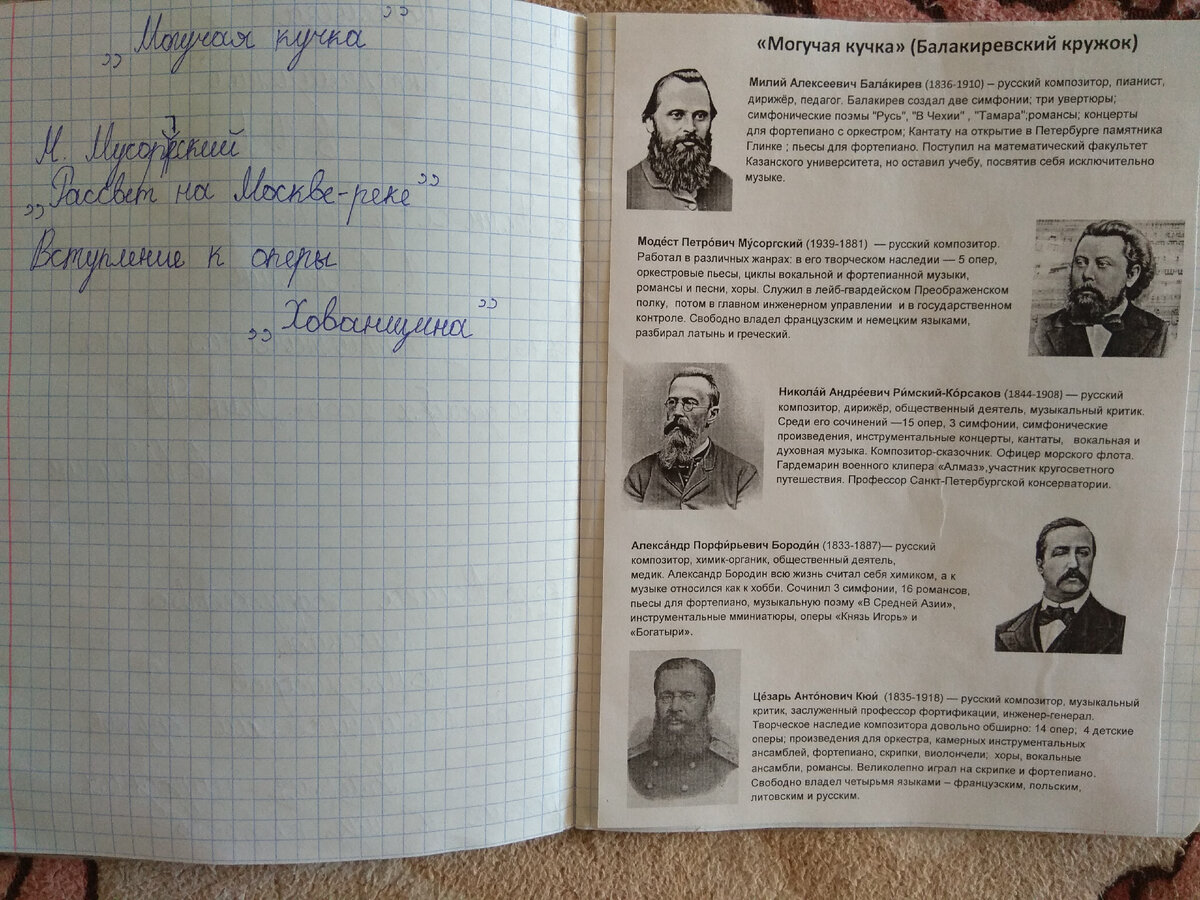 „Могучая кучка”
М. Мусоргский
„Рассвет на Москве-реке”
Вступление к оперы
„Хованщина”
«Могучая кучка» (Балакиревский кружок)
Милий Алексеевич Бала́кирев (1836-1910) – русский композитор, пианист,
дирижёр, педагог. Балакирев создал две симфонии; три увертюры;
симфонические поэмы "Русь", "В Чехии" , "Тамара";романсы; концерты
для фортепиано с оркестром; Кантату на открытие в Петербурге памятника
Глинке ; пьесы для фортепиано. Поступил на математический факультет
Казанского университета, но оставил учебу, посвятив себя исключительно
музыке.
Моде́ст Петро́вич Му́соргский (1939-1881) — русский композитор.
Работал в различных жанрах: в его творческом наследии — 5 опер,
оркестровые пьесы, циклы вокальной и фортепианной музыки,
романсы и песни, хоры. Служил в лейб-гвардейском Преображенском
полку, потом в главном инженерном управлении и в государственном
контроле. Свободно владел французским и немецким языками,
разбирал латынь и греческий.
Никола́й Андре́евич Ри́мский-Ко́рсаков (1844-1908) — русский
композитор, дирижёр, общественный деятель, музыкальный критик.
Среди его сочинений —15 опер, 3 симфонии, симфонические
произведения, инструментальные концерты, кантаты, вокальная и
духовная музыка. Композитор-сказочник. Офицер морского флота.
Гардемарин военного клипера «Алмаз»,участник кругосветного
путешествия. Профессор Санкт-Петербургской консерватории.
Алекса́ндр Порфи́рьевич Бороди́н (1833-1887)— русский
композитор, химик-органик, общественный деятель,
медик. Александр Бородин всю жизнь считал себя химиком, а к
музыке относился как к хобби. Сочинил 3 симфонии, 16 романсов,
пьесы для фортепиано, музыкальную поэму «В Средней Азии»,
инструментальные мминиатюры, оперы «Князь Игорь» и
«Богатыри».
Це́зарь Анто́нович Кюи́ (1835-1918) — русский композитор, музыкальный
критик, заслуженный профессор фортификации, инженер-генерал.
Творческое наследие композитора довольно обширно: 14 опер, 4 детские
оперы; произведения для оркестра, камерных инструментальных
ансамблей, фортепиано, скрипки, виолончели; хоры, вокальные
ансамбли, романсы. Великолепно играл на скрипке и фортепиано.
Свободно владел четырьмя языками – французским, польским,
литовским и русским.